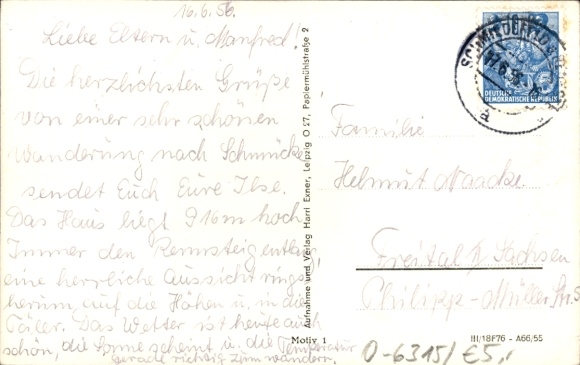 16.6.56.
Liebe Eltern u. Manfred!
Die herzlichsten Grüße
von einer sehr schönen
Wanderung nach Schmücke
sendet Euch Eure Ilse.
Das Haus liegt 916m hoch
Immer den Rennsteig entlang
eine herrliche Aussicht rings
herum, auf die Höhen u. in die
Täler. Das Wetter ist heute auch
schön, die Sonne scheint u. die Temperatur
gerade richtig zum wandern.
Aufnahme und Verlag Harri Exner, Leipzig O 27, Papiermühlstraße 2
Motiv 1
DEUTSCHE
DEMOKRATISCHE REPUBLIK
17.6.56
a
Familie
Helmut Naacke.
Freital II Sachsen
Philipp-Müller Str. 5
III/18F76 - A66/55
O-6315/€5,-